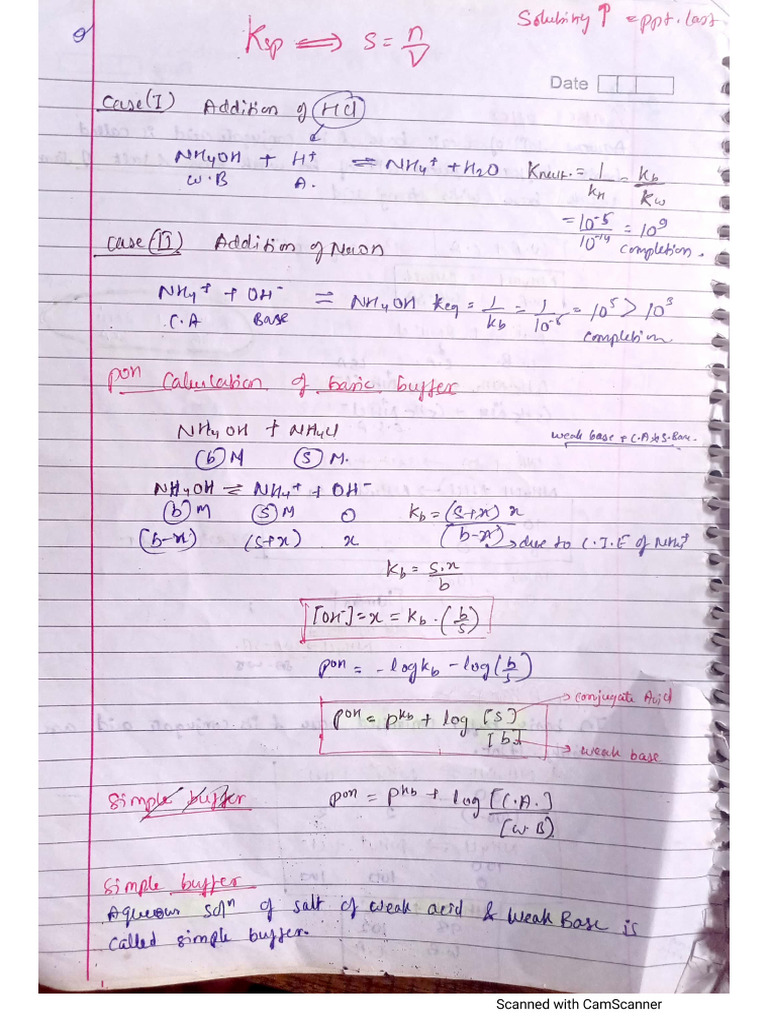 Solubility ↑ = ppt. last.
9
Ksp ⟺ S = n/V
Date
Case(I) Addition of HCl
NH4OH + H+ ⇌ NH4+ + H2O Kneut. = 1/kH = kb/kw
W.B A.
= 10^-5/10^-14 = 10^9
completion.
Case(II) Addition of NaOH
NH4+ + OH- ⇌ NH4OH Keq = 1/kb = 1/10^-5 = 10^5 > 10^3
C.A Base
completion.
pOH Calculation of basic buffer
NH4OH + NH4Cl
weak base + C.A of S.Base.
(b) M (S) M.
NH4OH ⇌ NH4+ + OH-
(b) M (S) M O kb = (S+x) x/(b-x)
(b-x) (S+x) x → due to C.I.E of NH4+
kb = s.x/b
[OH-] = x = kb.(b/s)
pOH = -log kb - log(b/s)
→ conjugate Acid
pOH = pkb + log [S]/[b]
→ weak base
Simple buffer pOH = pkb + log [C.A.]/[W.B]
Simple buffer
Aqueous Soln of salt of weak acid & Weak Base is
called simple buffer.
Scanned with CamScanner